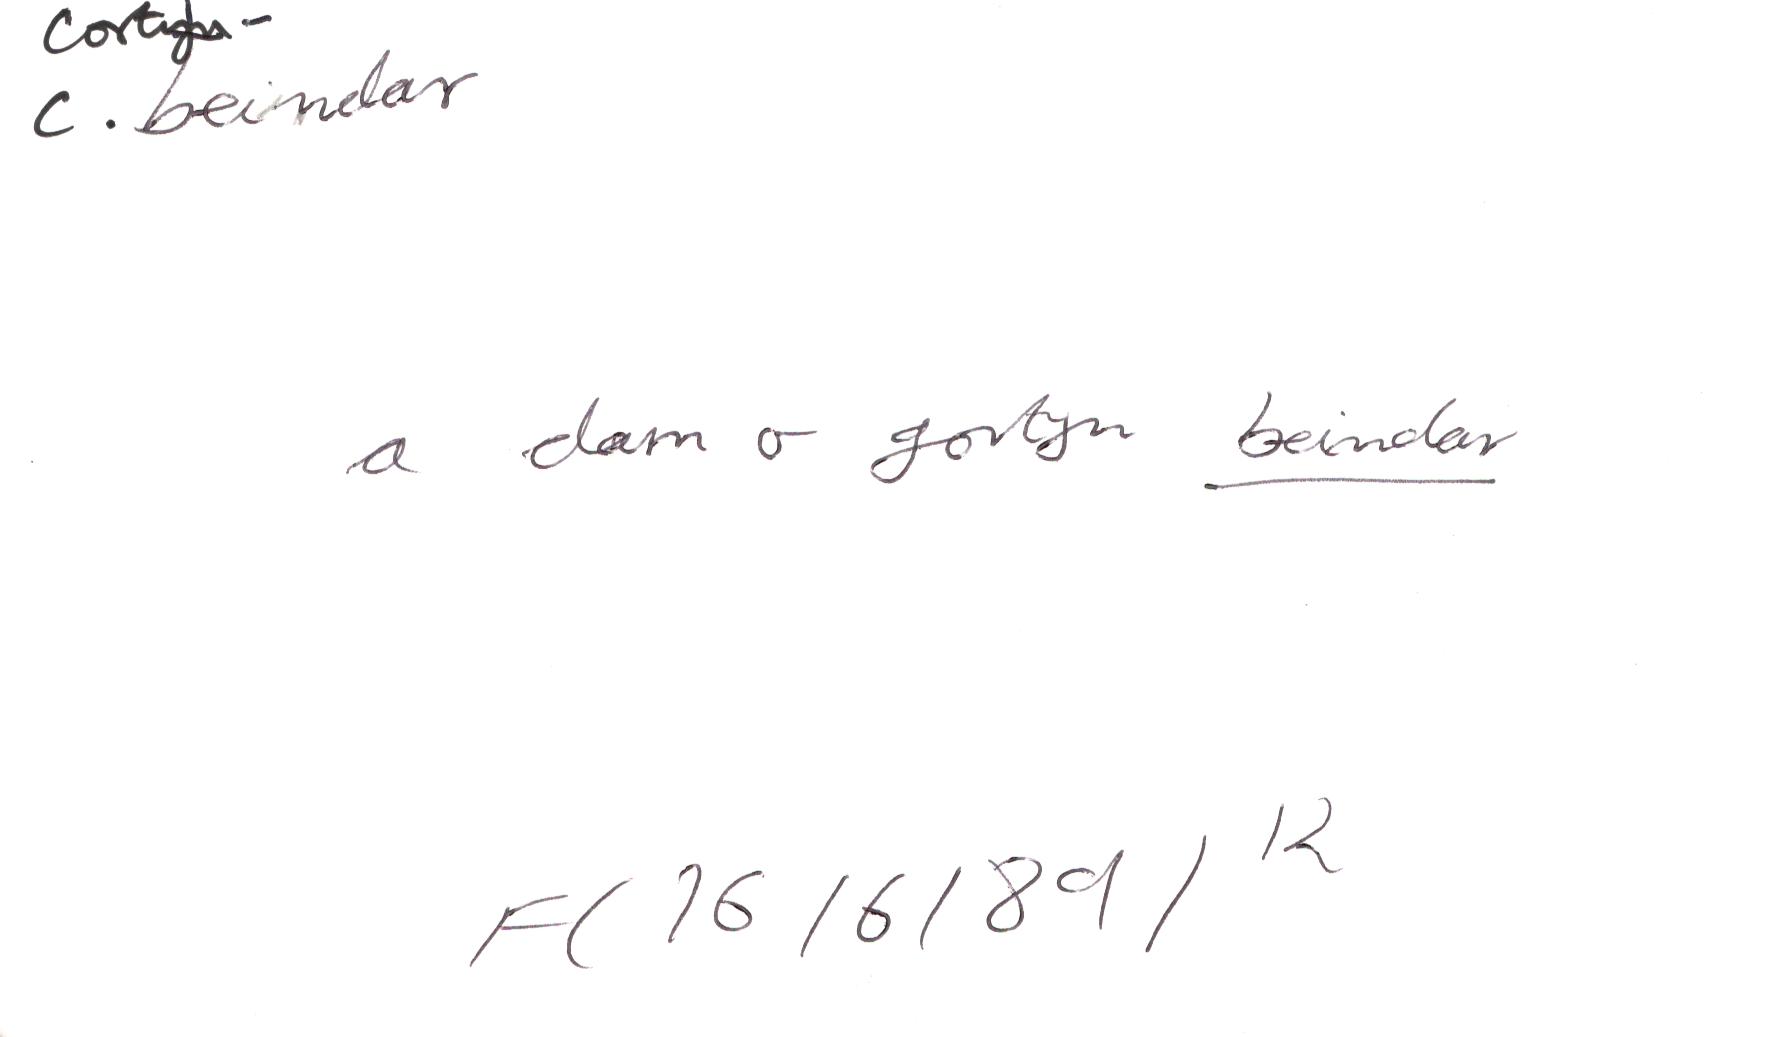 Cortyn -
C. beindar
a darn o gortyn beindar
F(16/6/89)12